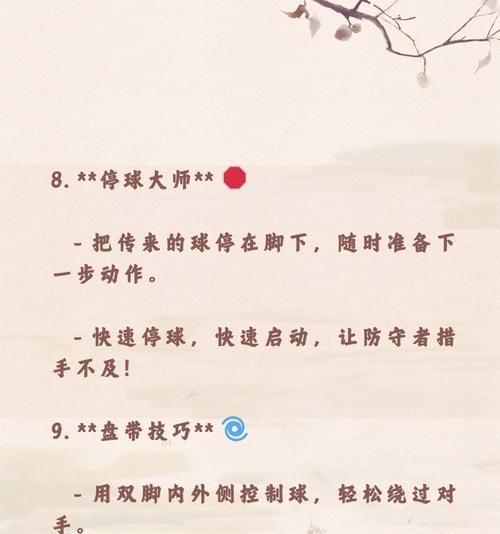 8. **停球大师** 🛑
- 把传来的球停在脚下，随时准备下
一步动作。
- 快速停球，快速启动，让防守者措
手不及！
9. **盘带技巧** 🌀
- 用双脚内外侧控制球，轻松绕过对
手。